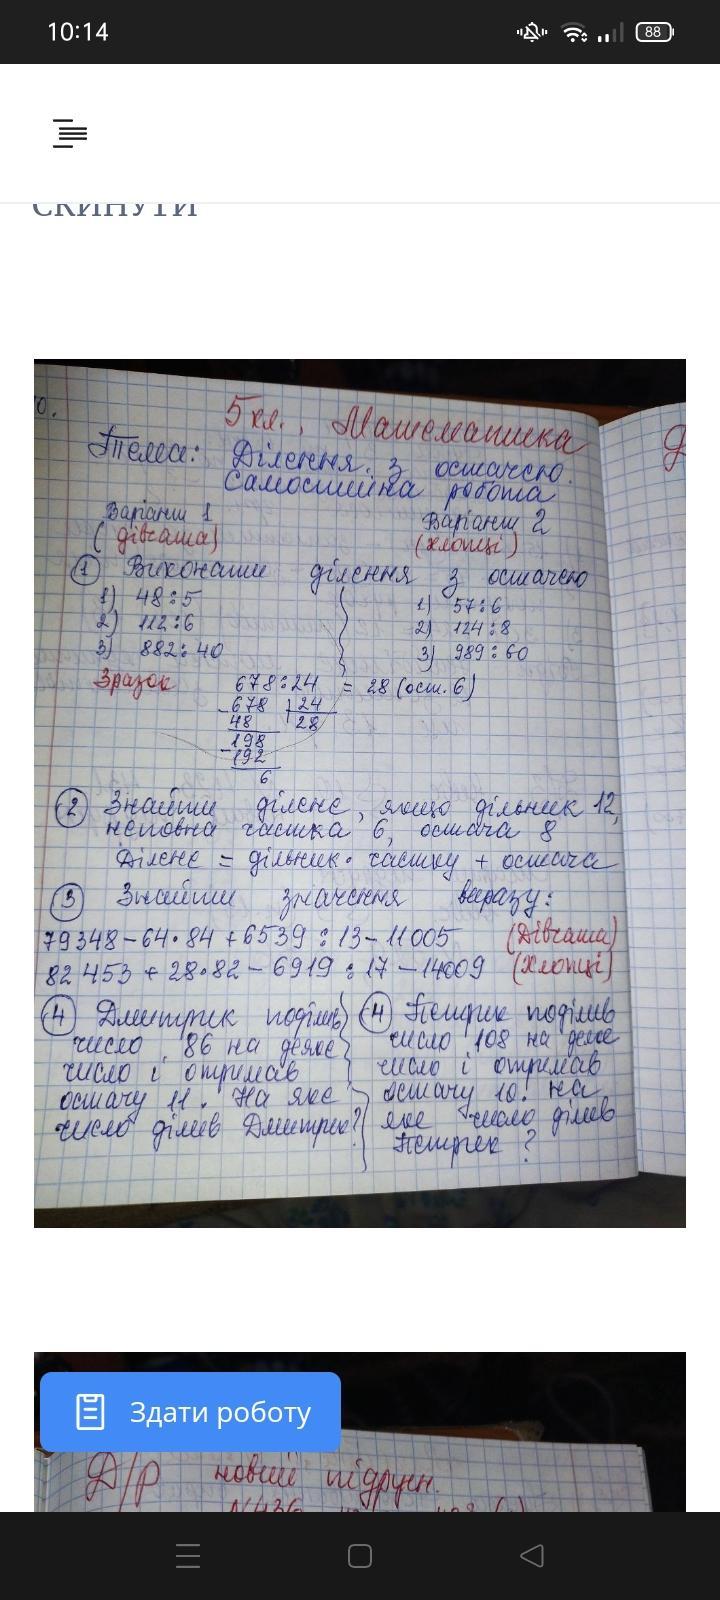 10:14
88
СКИНУТИ
5 кл., Математика
Тема: Ділення з остачею.
Самостійна робота
Варіант 1
Варіант 2
(дівчата)
(хлопці)
1 Виконати ділення з остачею
1) 48:5
1) 57:6
2) 112:6
2) 124:8
3) 882:40
3) 989:60
Зразок 678:24 = 28 (ост. 6)
-678 24
48 28
198
-192
6
2 Знайти ділене, якщо дільник 12,
неповна частка 6, остача 8
Ділене = дільник · частку + остача
3 Знайти значення виразу:
79348-64·84+6539:13-11005 (Дівчата)
82453+28·82-6919:17-14009 (Хлопці)
4 Дмитрик поділив
число 86 на деяке
число і отримав
остачу 11. На яке
число ділив Дмитрик?
4 Петрик поділив
число 108 на деяке
число і отримав
остачу 10. На
яке число ділив
Петрик?
Здати роботу
Д/р новий підручн.